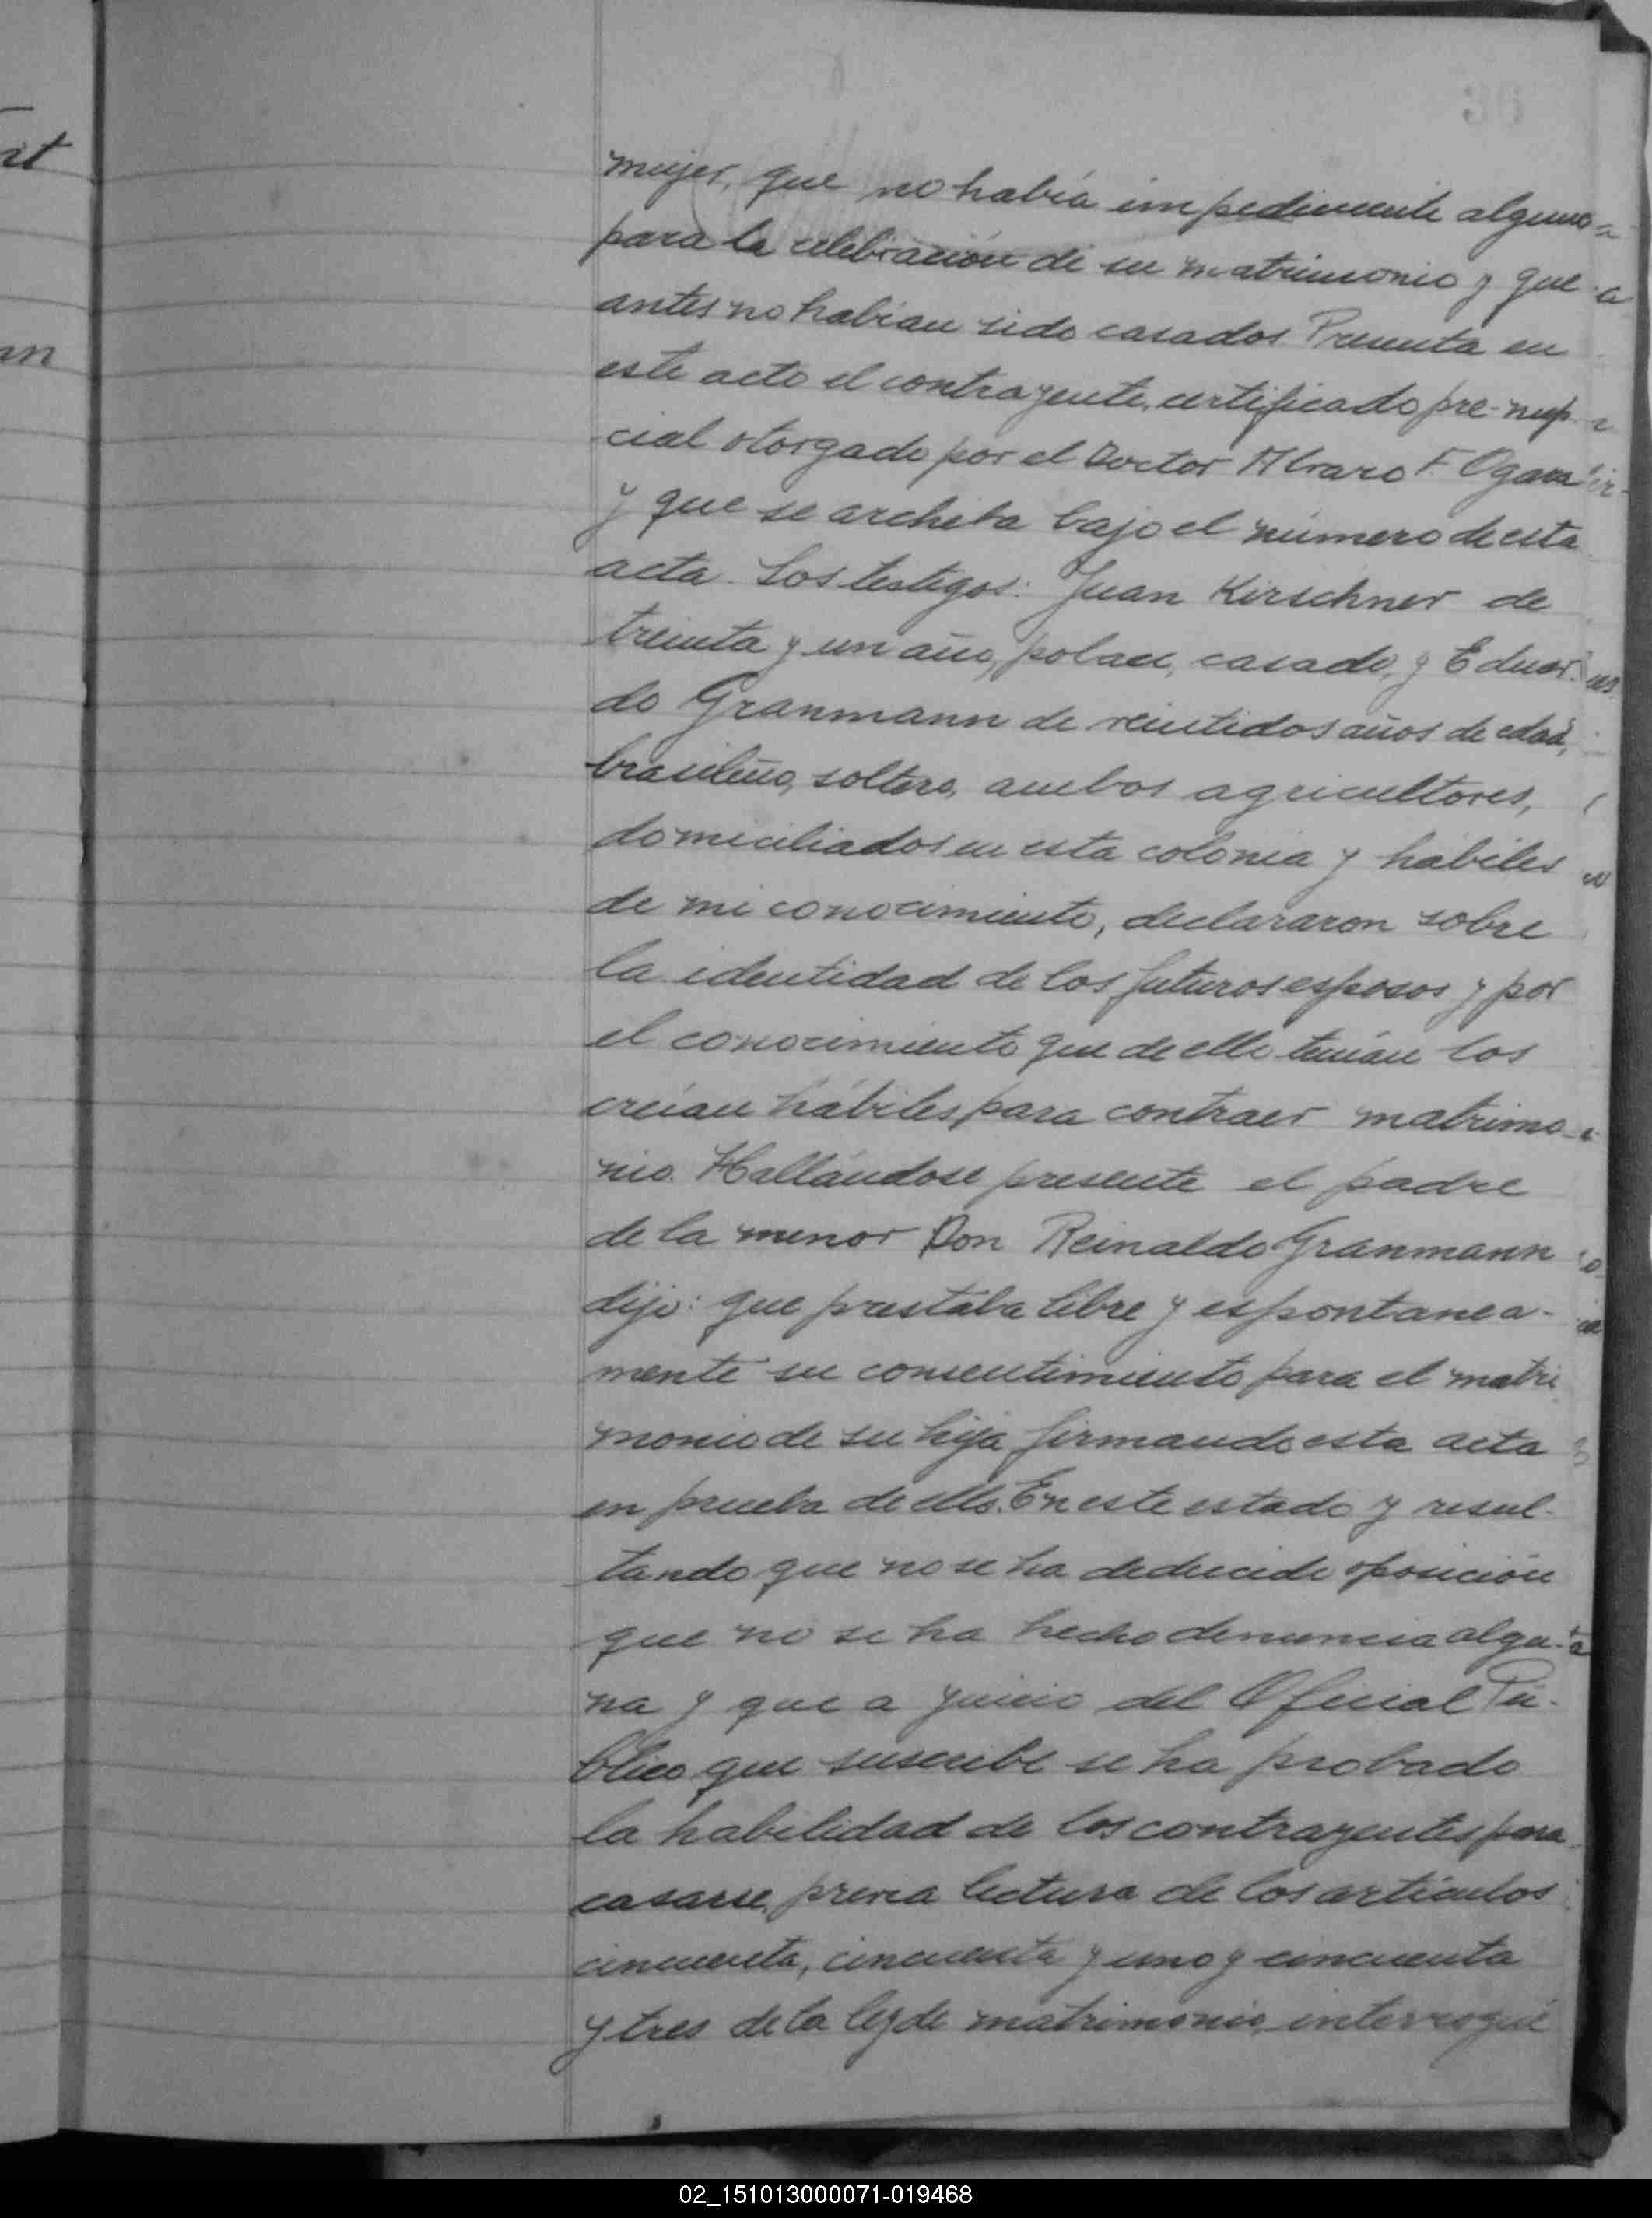 mujer, que no había impedimento alguno
para la celebración de su matrimonio y que
antes no habían sido casados Presenta en
este acto el contrayente, certificado pre-nup-
cial otorgado por el Doctor Alvaro F. Ogara
y que se archiba bajo el número de esta
acta. Los testigos: Juan Kirschner de
treinta y un año, polaco, casado, y Eduar-
do Granmann de veintidos años de edad,
brasileño, soltero, ambos agricultores,
domiciliados en esta colonia y hábiles
de mi conocimiento, declararon sobre
la identidad de los futuros esposos y por
el conocimiento que de ello tenían los
creían hábiles para contraer matrimo-
nio. Hallándose presente el padre
de la menor Don Reinaldo Granmann
dijo: que prestaba libre y espontanea-
mente su consentimiento para el matri
monio de su hija firmando esta acta
en prueba de ello. En este estado y resul-
tando que no se ha deducido oposición
que no se ha hecho denuncia algu-
na y que a juicio del Oficial Pú-
blico que suscribe se ha probado
la habilidad de los contrayentes para
casarse, previa lectura de los artículos
cincuenta, cincuenta y uno y cincuenta
y tres de la ley de matrimonio, interrogué
02_151013000071-019468